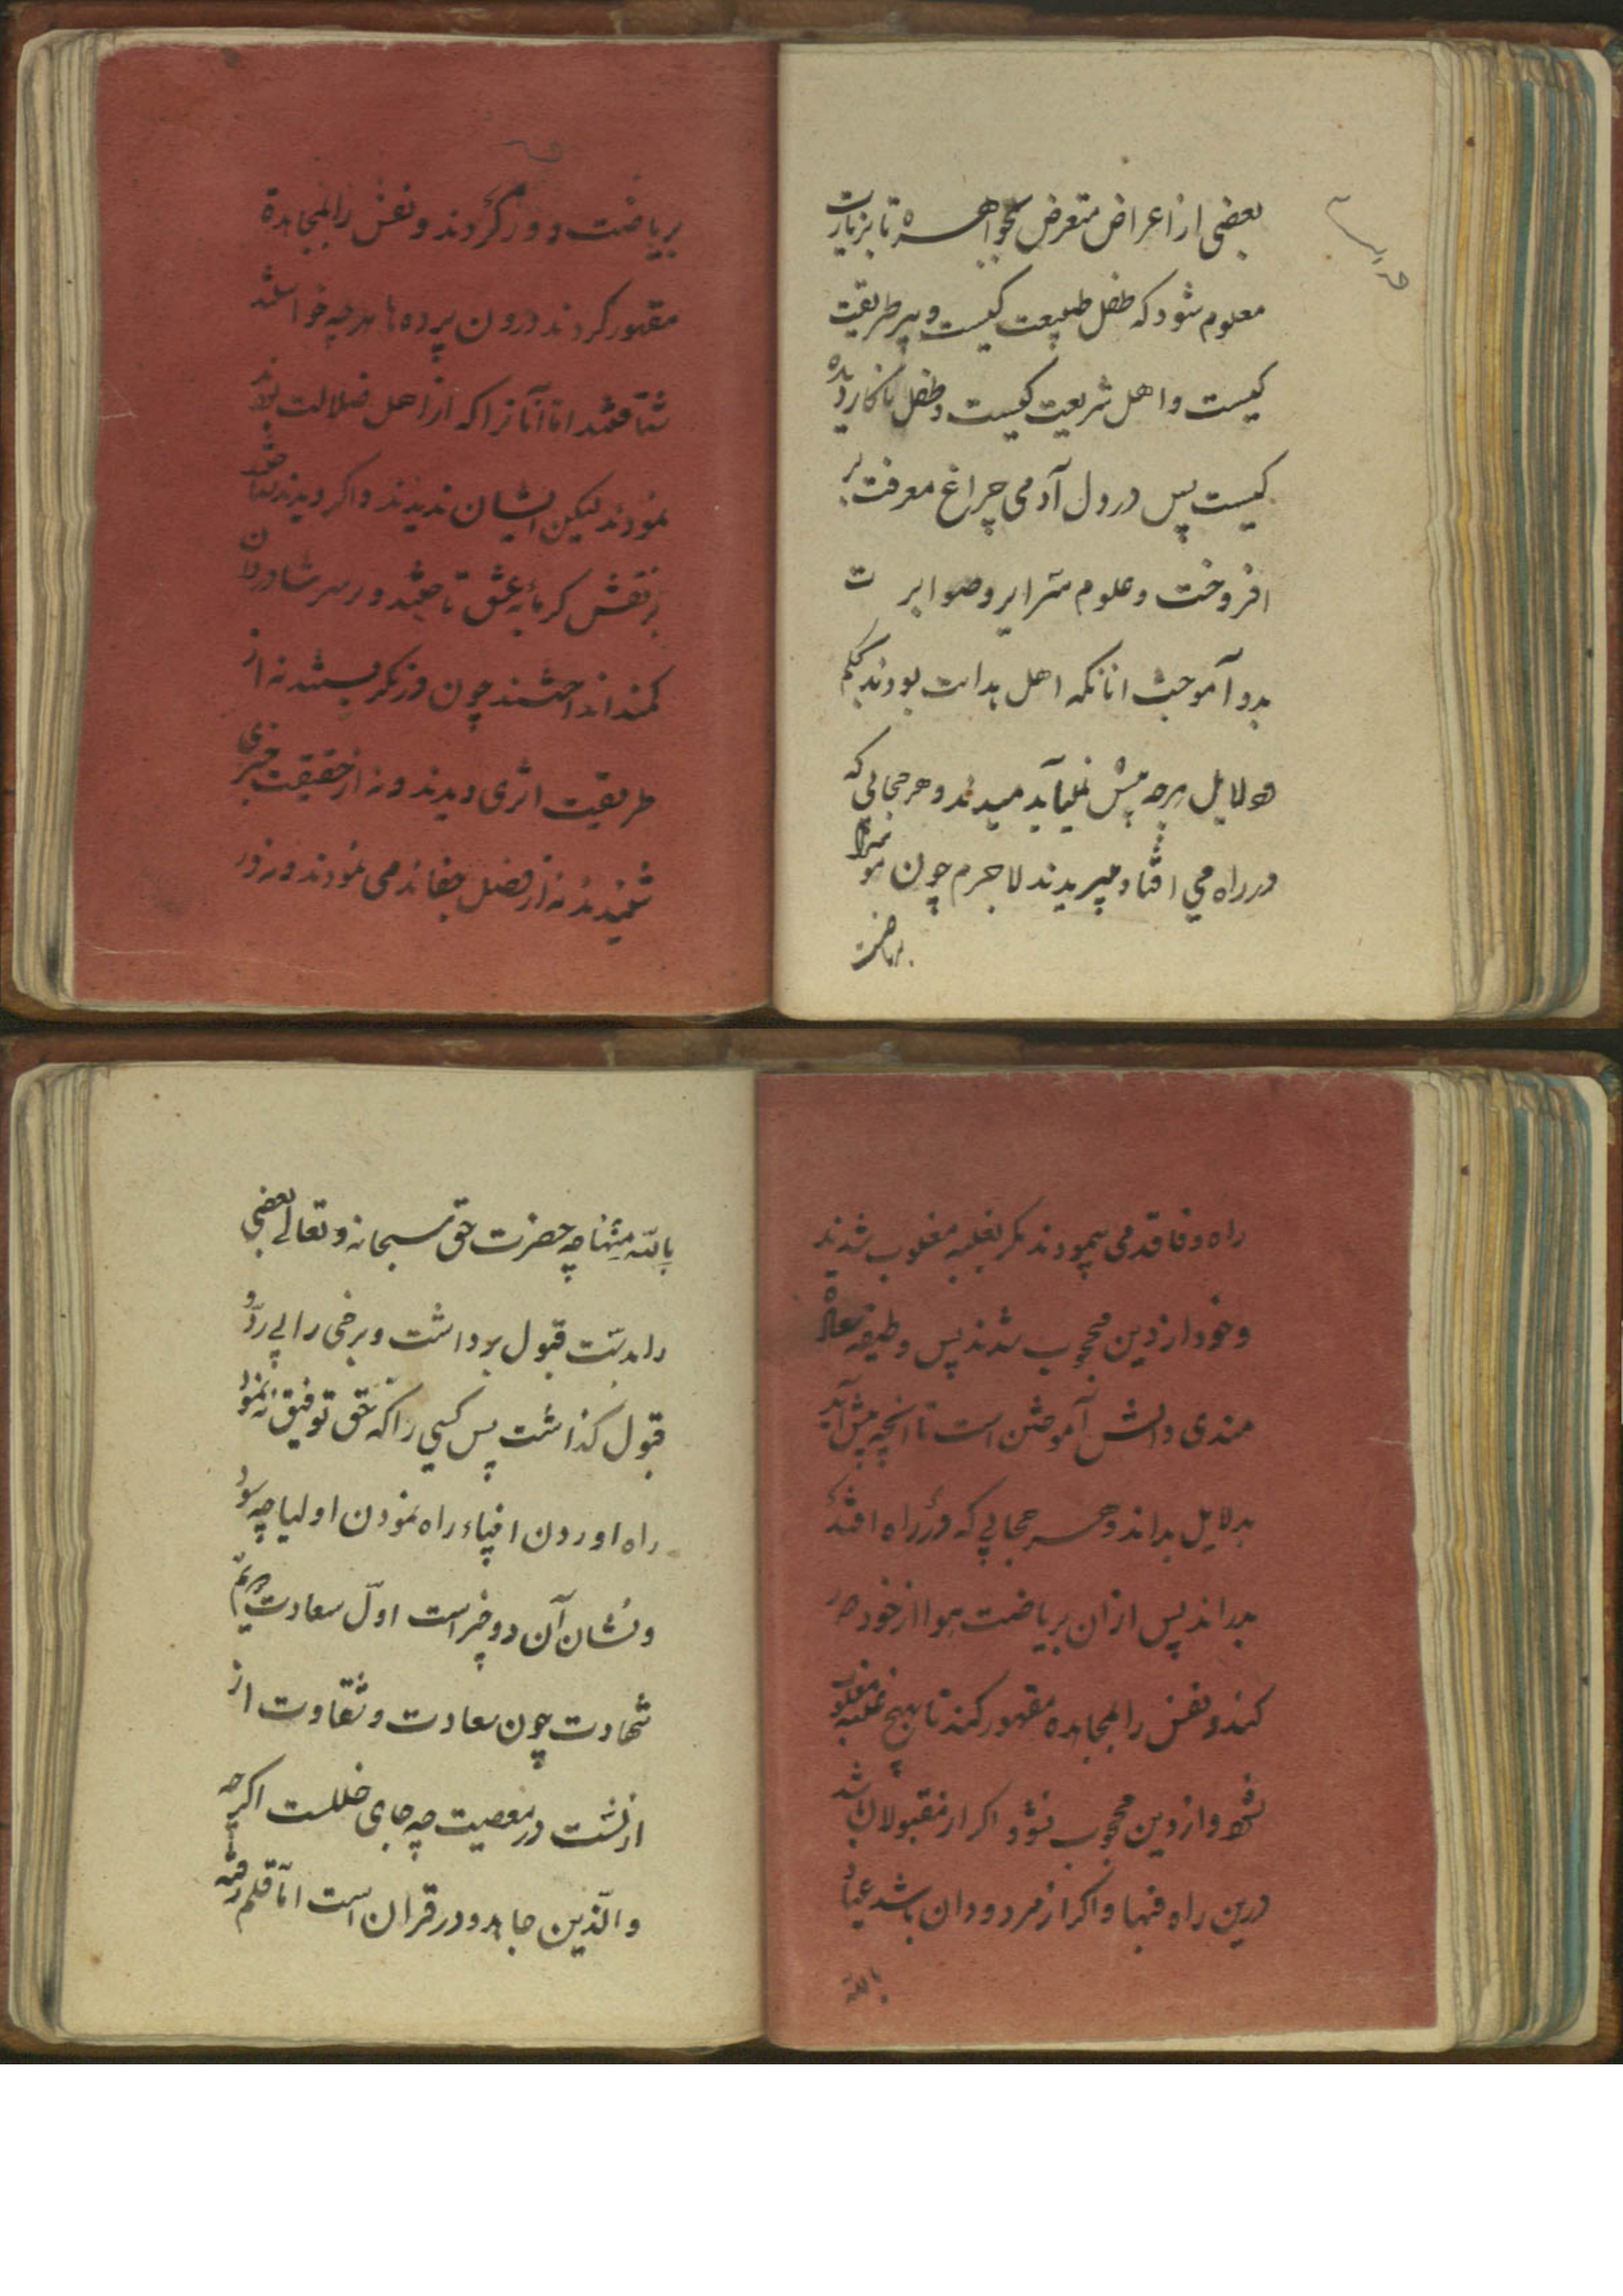 بعضی از اعراض متعرض بجواهر شده تا بزیارت
معلوم شود که طفل طبیعت کیست و پیر طریقت
کیست و اهل شریعت کیست و طفل نا کار دیده
کیست پس در دل آدمی چراغ معرفت بر
افروخت و علوم سرایر و صوابر ت
بدو آموخت انانکه اهل هدایت بودند بحکم
دلایل هرچه پیش میآید میدیدند و هر حجابی که
در راه می افتاد میبریدند لاجرم چون هوا را
بریاضت
بریاضت دور کردند و نفس را بمجاهدة
مقهور کردند درون پرده ها هرچه خواستند
شتافتند اما آنانرا که از اهل ضلالت بودند
نمودند لیکن ایشان ندیدند و اگر دیدند نشناختند
بر نقش کرمایه عشق تاختند و بر سر شادروان
کمند انداختند چون در نگریستند نه از
طریقت اثری دیدند و نه از حقیقت خبری
شنیدند نه از فضل جفا ند می نمودند و نه در
راه وفا قدمی پیمودند مگر بغلبه مغلوب شدند
و خود از دین محجوب شدند پس وظیفه سعادة
مندی دانش آموختن است تا انچه پیش آید
بدلایل بداند و هر حجابی که در راه افتد
بدراند پس ازان بریاضت هوا از خود دور
کند و نفس را بمجاهده مقهور کند تا بهیچ غلبه مغلوب
نشود و از دین محجوب نشود اگر از مقبولان باشد
درین راه فبها و اگر از مردودان باشد عیاذا
بالله
بالله منها چه حضرت حق سبحانه و تعالی بعضی
را بدست قبول برداشت و برخی را بی رد و
قبول گذاشت پس کسی را که حق توفیق ننمود
راه اوردن انبیاء راه نمودن اولیا چه سود
و نشان آن دو خبر است اول سعادت
شهادت چون سعادت و شقاوت از
ازلست در معصیت چه جای خللست اگرچه
والذین جاهدو در قران است اما قلم رفته